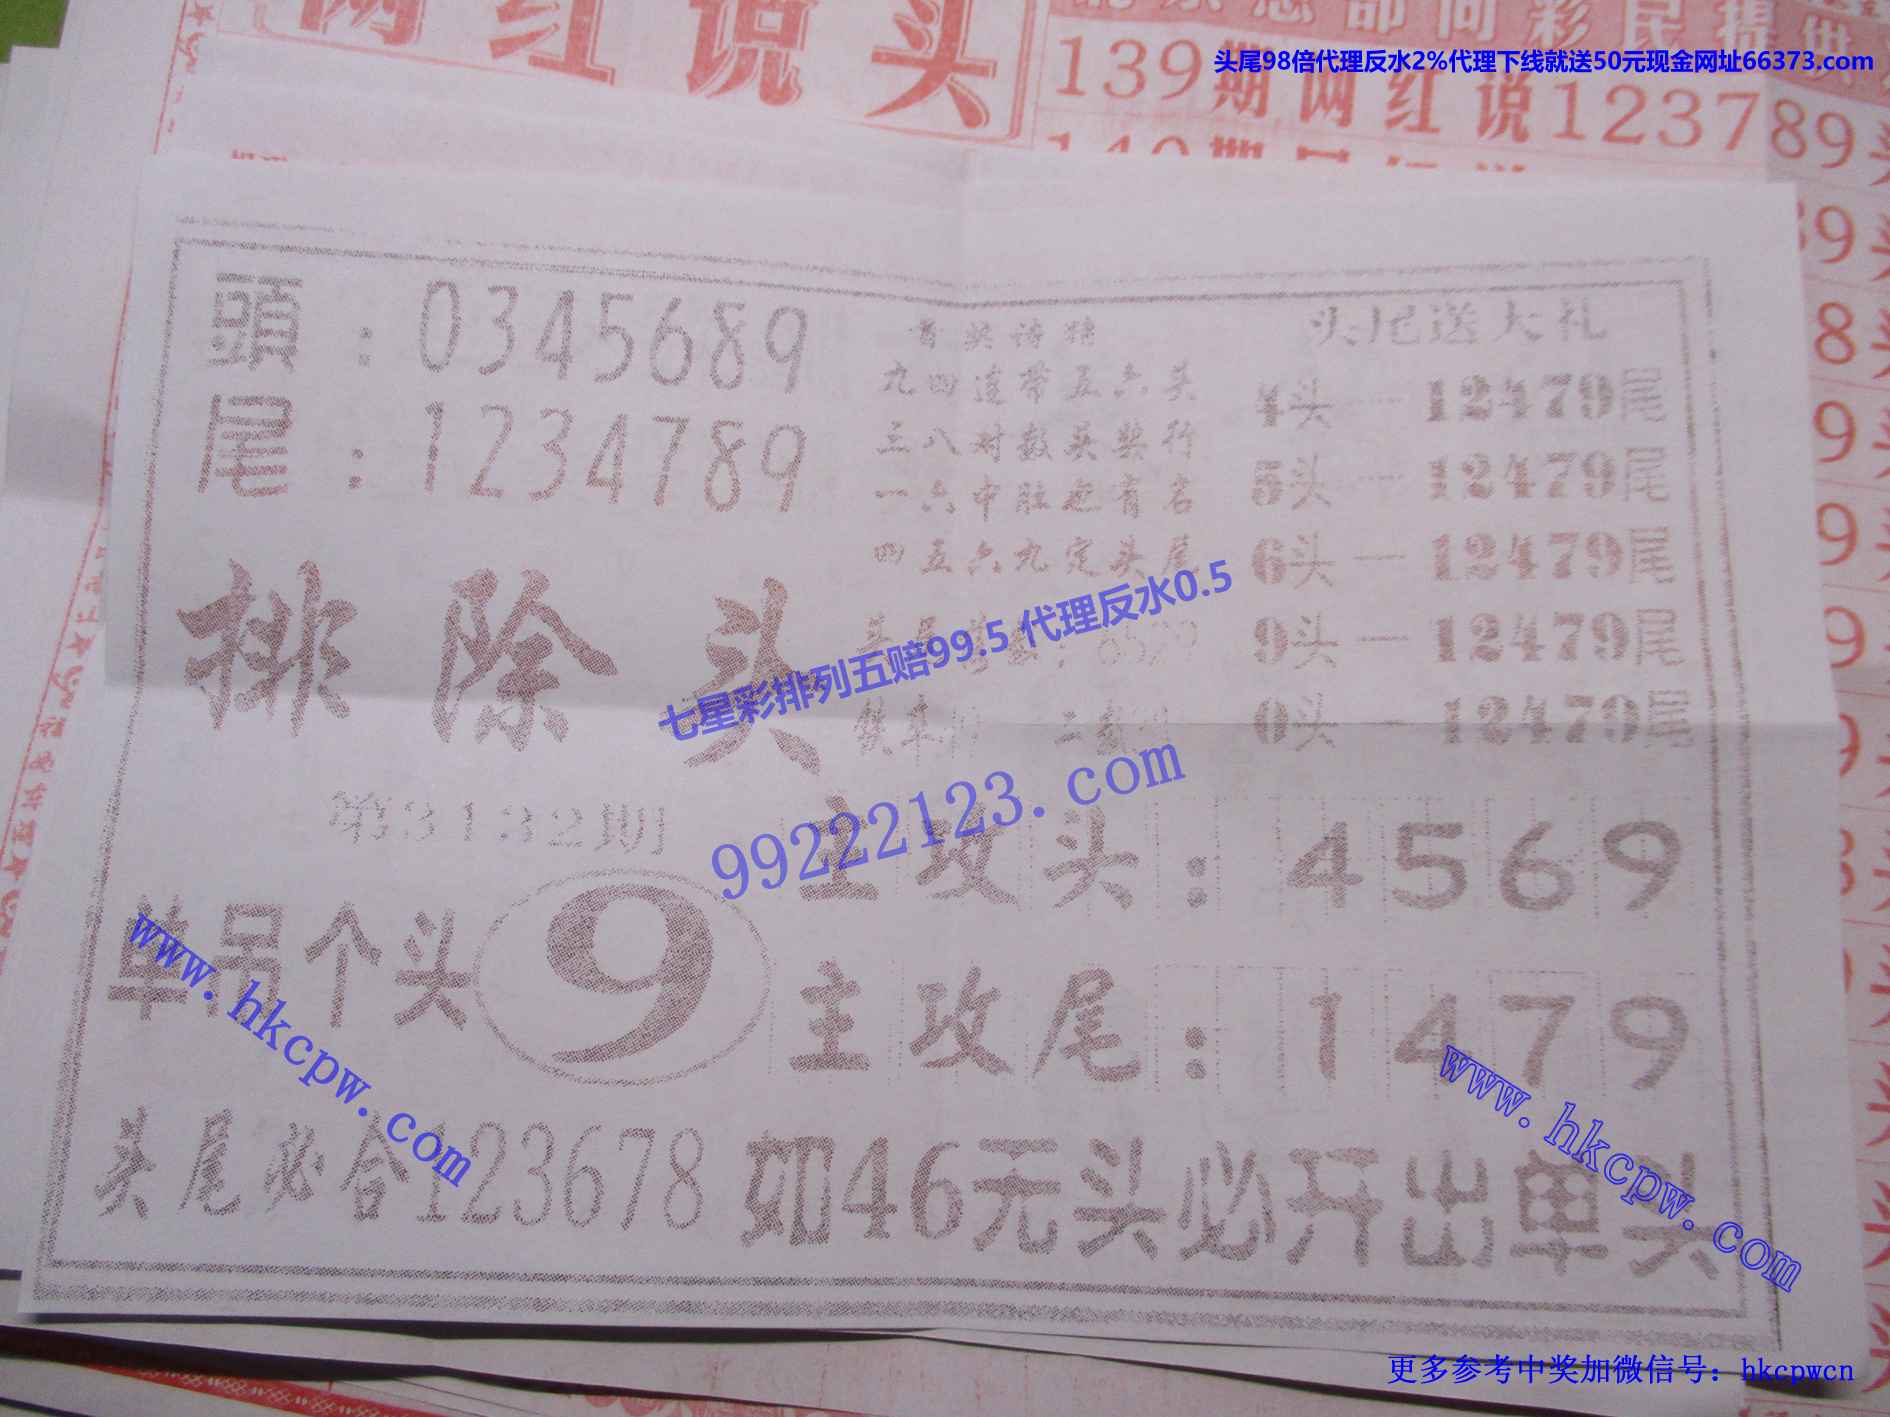 网红说头
北京总部向彩民提供
头尾98倍代理反水2%代理下线就送50元现金网址66373.com
139期网红说123789头
頭：0345689
尾：1234789
排除头
第3132期
单吊个头9
头尾必合123678
九四连带五六头
三八对数头奖行
一六中肚也有名
四五六九定头尾
头尾送大礼
4头一12479尾
5头一12479尾
6头一12479尾
9头一12479尾
0头一12479尾
主攻头：4569
主攻尾：1479
如46无头必开出单头
七星彩排列五赔99.5 代理反水0.5
99222123.com
www.hkcpw.com
www.hkcpw.com
更多参考中奖加微信号：hkcpwcn